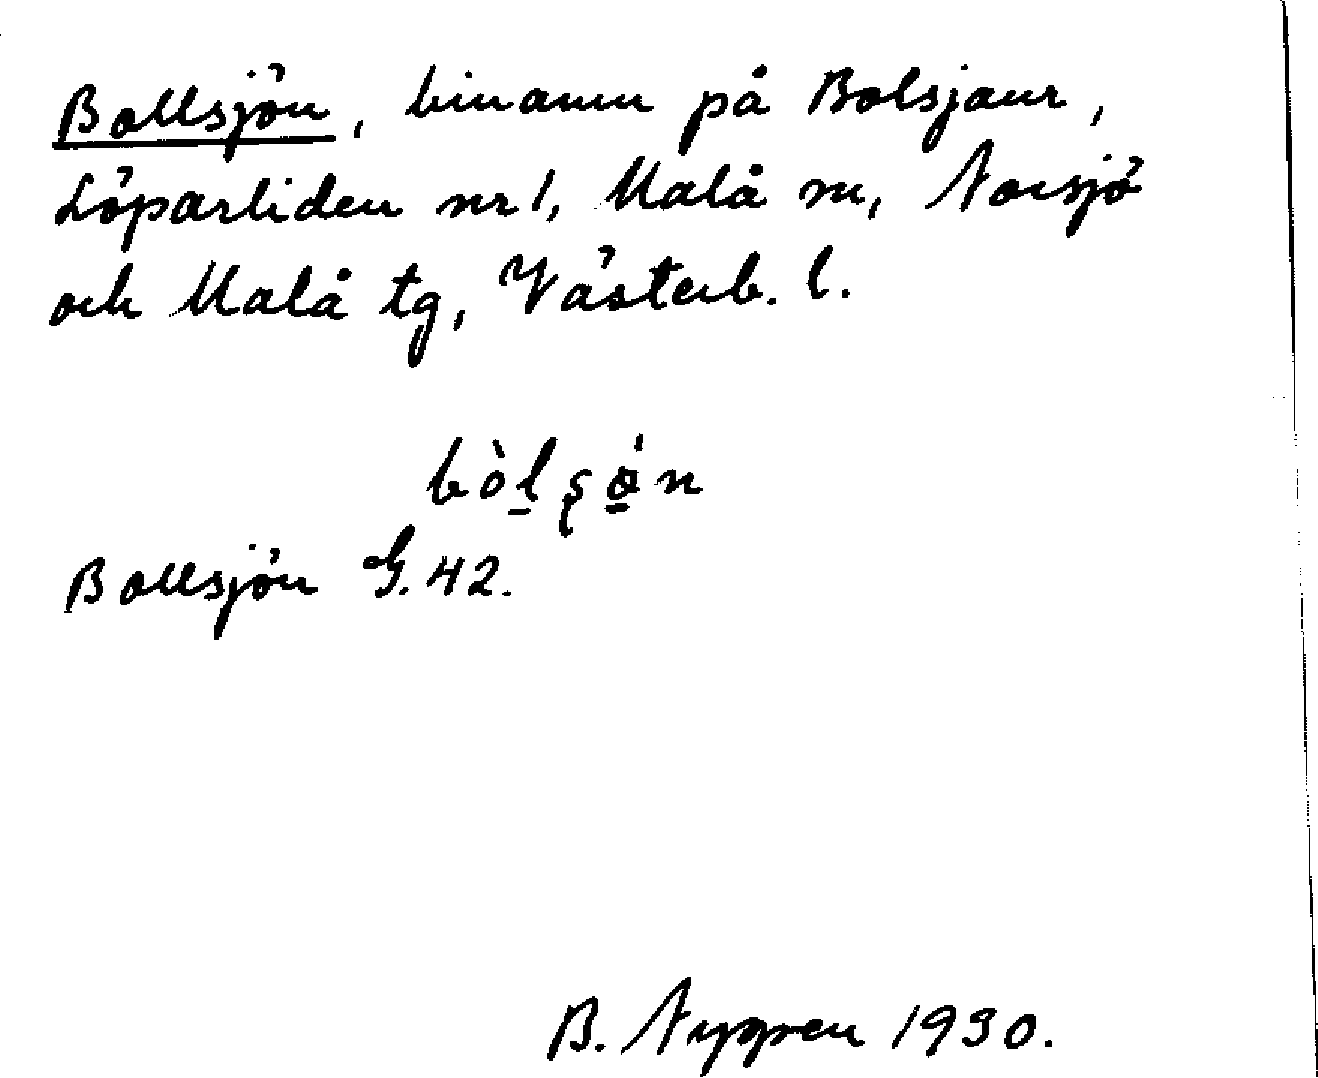 Bollsjön, binamn på Bolsjaur,
Löparliden nr 1, Malå sn, Norsjö
och Malå tg, Västerb. l.
bòl̠ʂǿ̠n
Bollsjön G. 42.
B. Nygren 1930.